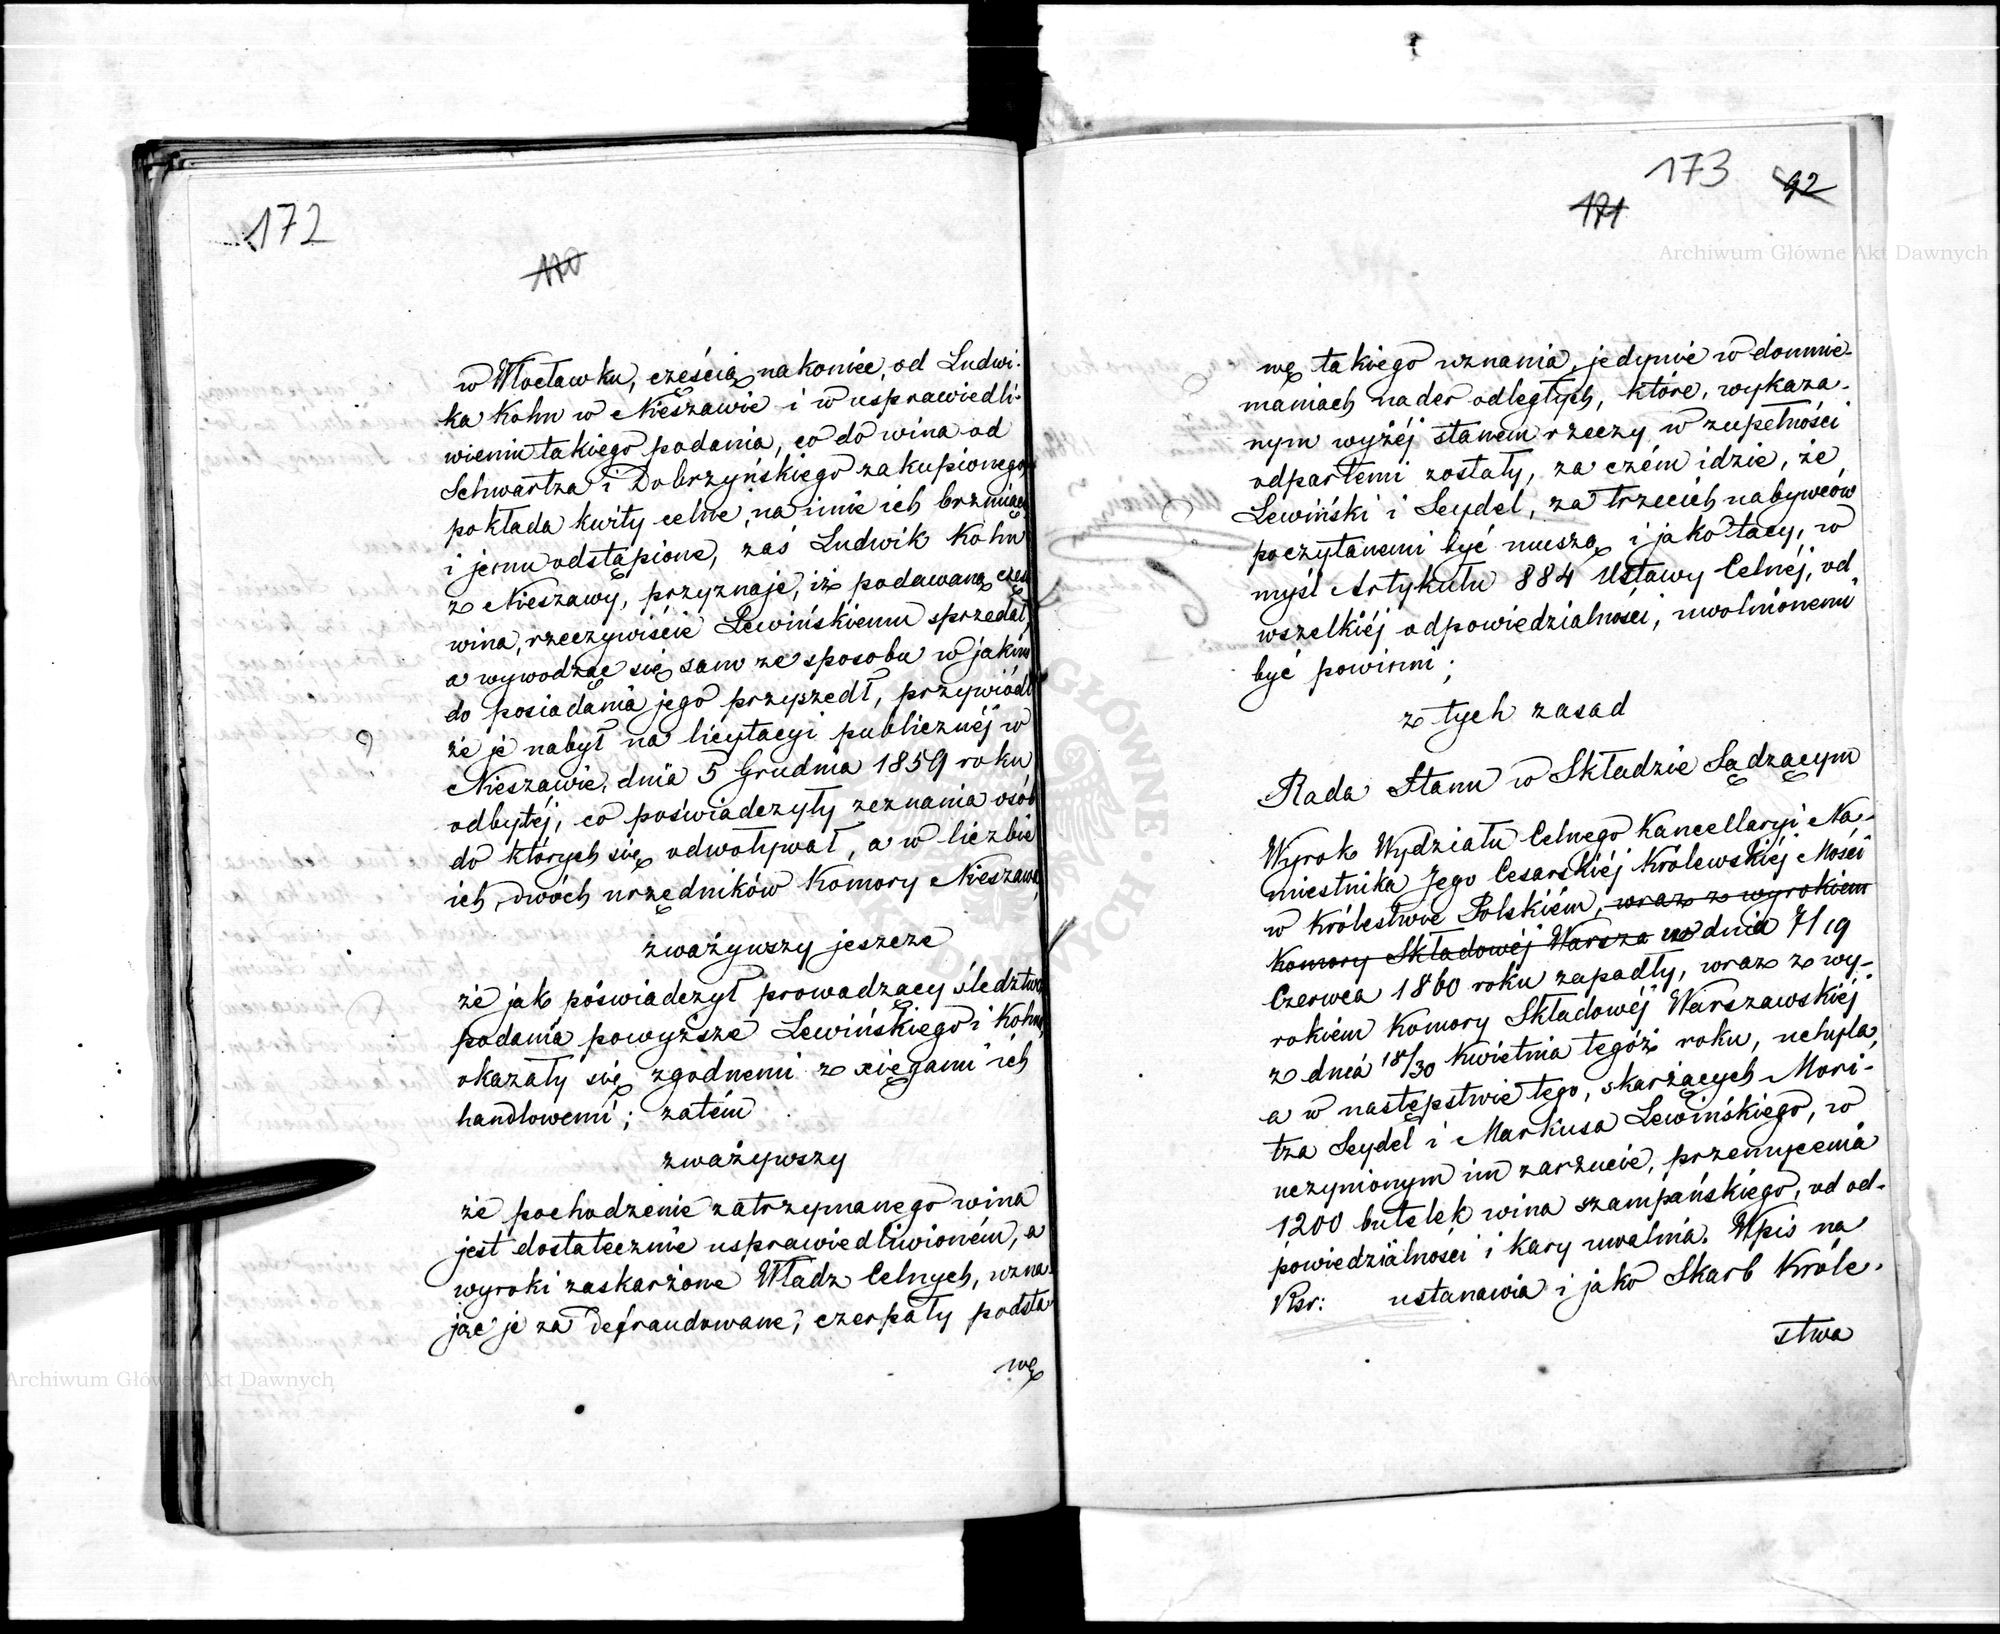 172
170
w Włocławku, częścią nakoniec, od Ludwi-
ka Kohn w Nieszawie i w usprawiedli-
wieniu takiego podania, co do wina od
Schwartza i Dobrzyńskiego zakupionego
pokłada kwity celne, na imie ich brzmiące
i jemu odstąpione, zaś Ludwik Kohn
z Nieszawy, przyznaje, iż podawaną część
wina, rzeczywiście Lewińskiemu sprzedał,
a wywodząc się sam ze sposobu w jakim
do posiadania jego przyszedł, przywiódł
że je nabył na licytacyi publicznéj w
Nieszawie, dnia 5 Grudnia 1859 roku
odbytéj, co poświadczyły zeznania osób
do których się odwoływał, a w liczbie
ich, dwóch urzędników Komory Nieszawa,
zważywszy jeszcze
że jak poświadczył prowadzący śledztwo,
podania powyższe Lewińskiego i Kohna,
okazały się zgodnemi z xięgami ich
handlowemi; zatém
zważywszy
że pochodzenie zatrzymanego wina
jest dostatecznie usprawiedliwioném, a
wyroki zaskarżone Władz Celnych, uzna-
jąc je za defraudowane, czerpały podsta-
wę
173
92
171
wę takiego uznania, jedynie w domnie-
maniach nader odległych, które, wykaza-
nym wyżéj stanem rzeczy w zupełności
odpartemi zostały, za czém idzie, że
Lewiński i Seydel, za trzecich nabywców
poczytanemi być muszą i jako tacy, w
myśl Artykułu 884 Ustawy Celnéj, od
wszelkiéj odpowiedzialności, uwolnionemi
być powinni;
z tych zasad
Rada Stanu w Składzie Sądzącym
Wyrok Wydziału Celnego Kancellaryi Na-
miestnika Jego Cesarskiéj Królewskiéj Mości
w Królestwie Polskiém, wraz z wyrokiem
Komory Składowéj Warsza w dnia 7/19
Czerwca 1860 roku zapadły, wraz z wy-
rokiem Komory Składowéj Warszawskiéj
z dnia 18/30 Kwietnia tegóż roku, uchyla,
a w następstwie tego, skarżących Mori-
tza Seydel i Markusa Lewińskiego, w
uczynionym im zarzucie, przemycenia
1200 butelek wina szampańskiego, od od-
powiedzialności i kary uwalnia. Wpis na
Rsr: ustanawia i jako Skarb Króle-
stwa
Archiwum Główne Akt Dawnych
Archiwum Główne Akt Dawnych